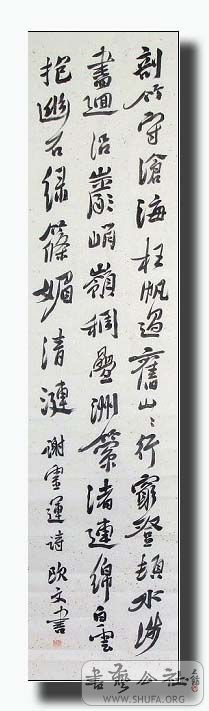 剖竹守滄海枉帆過舊山〻行窮登頓水涉
盡迴沿巖峭嶺稠疊洲縈渚連綿白雲
抱幽石綠篠媚清漣 謝靈運詩 欧文書
書藝公社
WWW.SHUFA.ORG